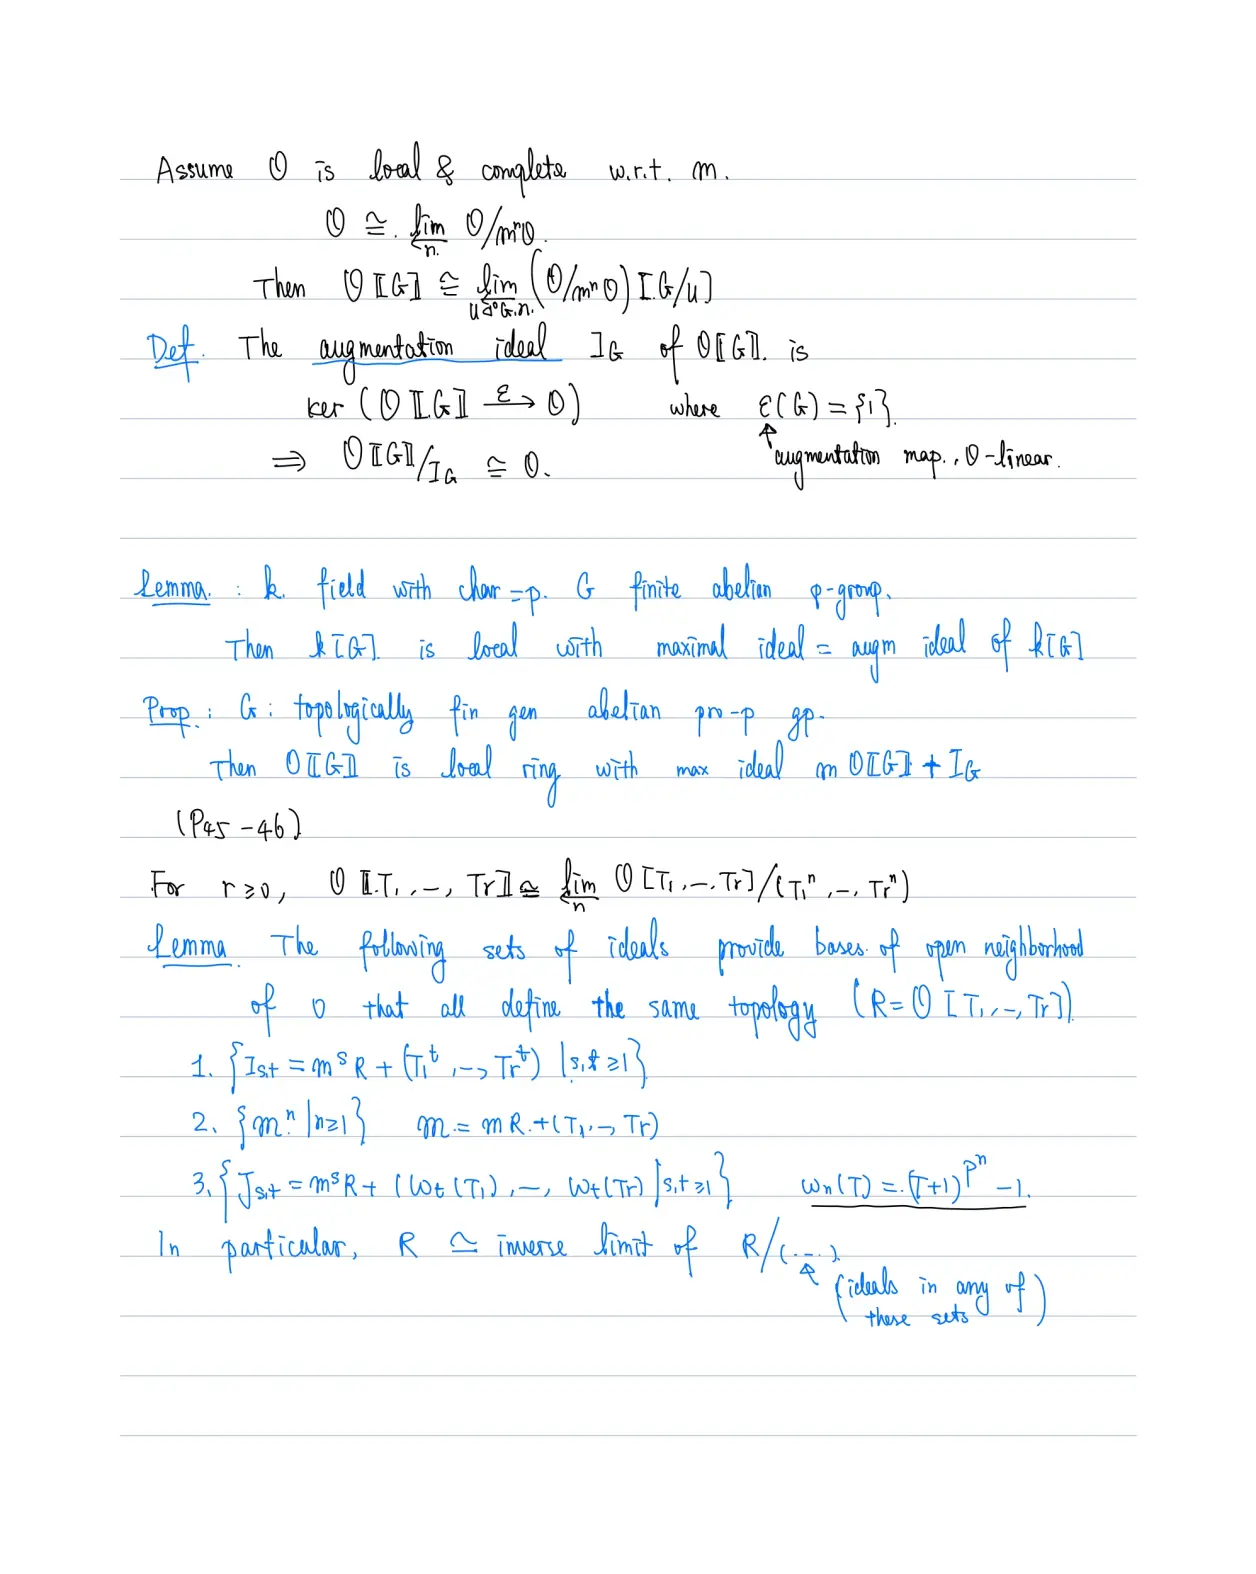 Assume 𝒪 is local & complete w.r.t. m.
𝒪 ≅ lim← n 𝒪/mⁿ𝒪.
Then 𝒪⟦G⟧ ≅ lim← U⊲°G,n. (𝒪/mⁿ𝒪)[G/U]
Def. The augmentation ideal I_G of 𝒪⟦G⟧. is
ker (𝒪⟦G⟧ —ε→ 𝒪) where ε(G) = {1}.
⟹ 𝒪⟦G⟧/I_G ≅ 𝒪. ↑ augmentation map., 𝒪-linear.
Lemma. : k. field with char = p. G finite abelian p-group.
Then k[G] is local with maximal ideal = augm ideal of k[G]
Prop. : G : topologically fin gen abelian pro-p gp.
Then 𝒪⟦G⟧ is local ring with max ideal m𝒪⟦G⟧ + I_G
(P45-46)
For r ≥ 0, 𝒪⟦T₁, –, T_r⟧ ≅ lim← n 𝒪[T₁, –, T_r]/(T₁ⁿ, –, T_rⁿ)
Lemma. The following sets of ideals provide bases of open neighborhood
of 0 that all define the same topology (R = 𝒪[T₁, –, T_r])
1. {I_{s,t} = m^s R + (T₁^t, –, T_r^t) | s,t ≥ 1}
2. {𝔪ⁿ | n ≥ 1} 𝔪 = mR + (T₁, –, T_r)
3. {J_{s,t} = m^s R + (ω_t(T₁), –, ω_t(T_r) | s,t ≥ 1} ω_n(T) = (T+1)^{pⁿ} – 1.
In particular, R ≃ inverse limit of R/(...).
↑ (ideals in any of
these sets)